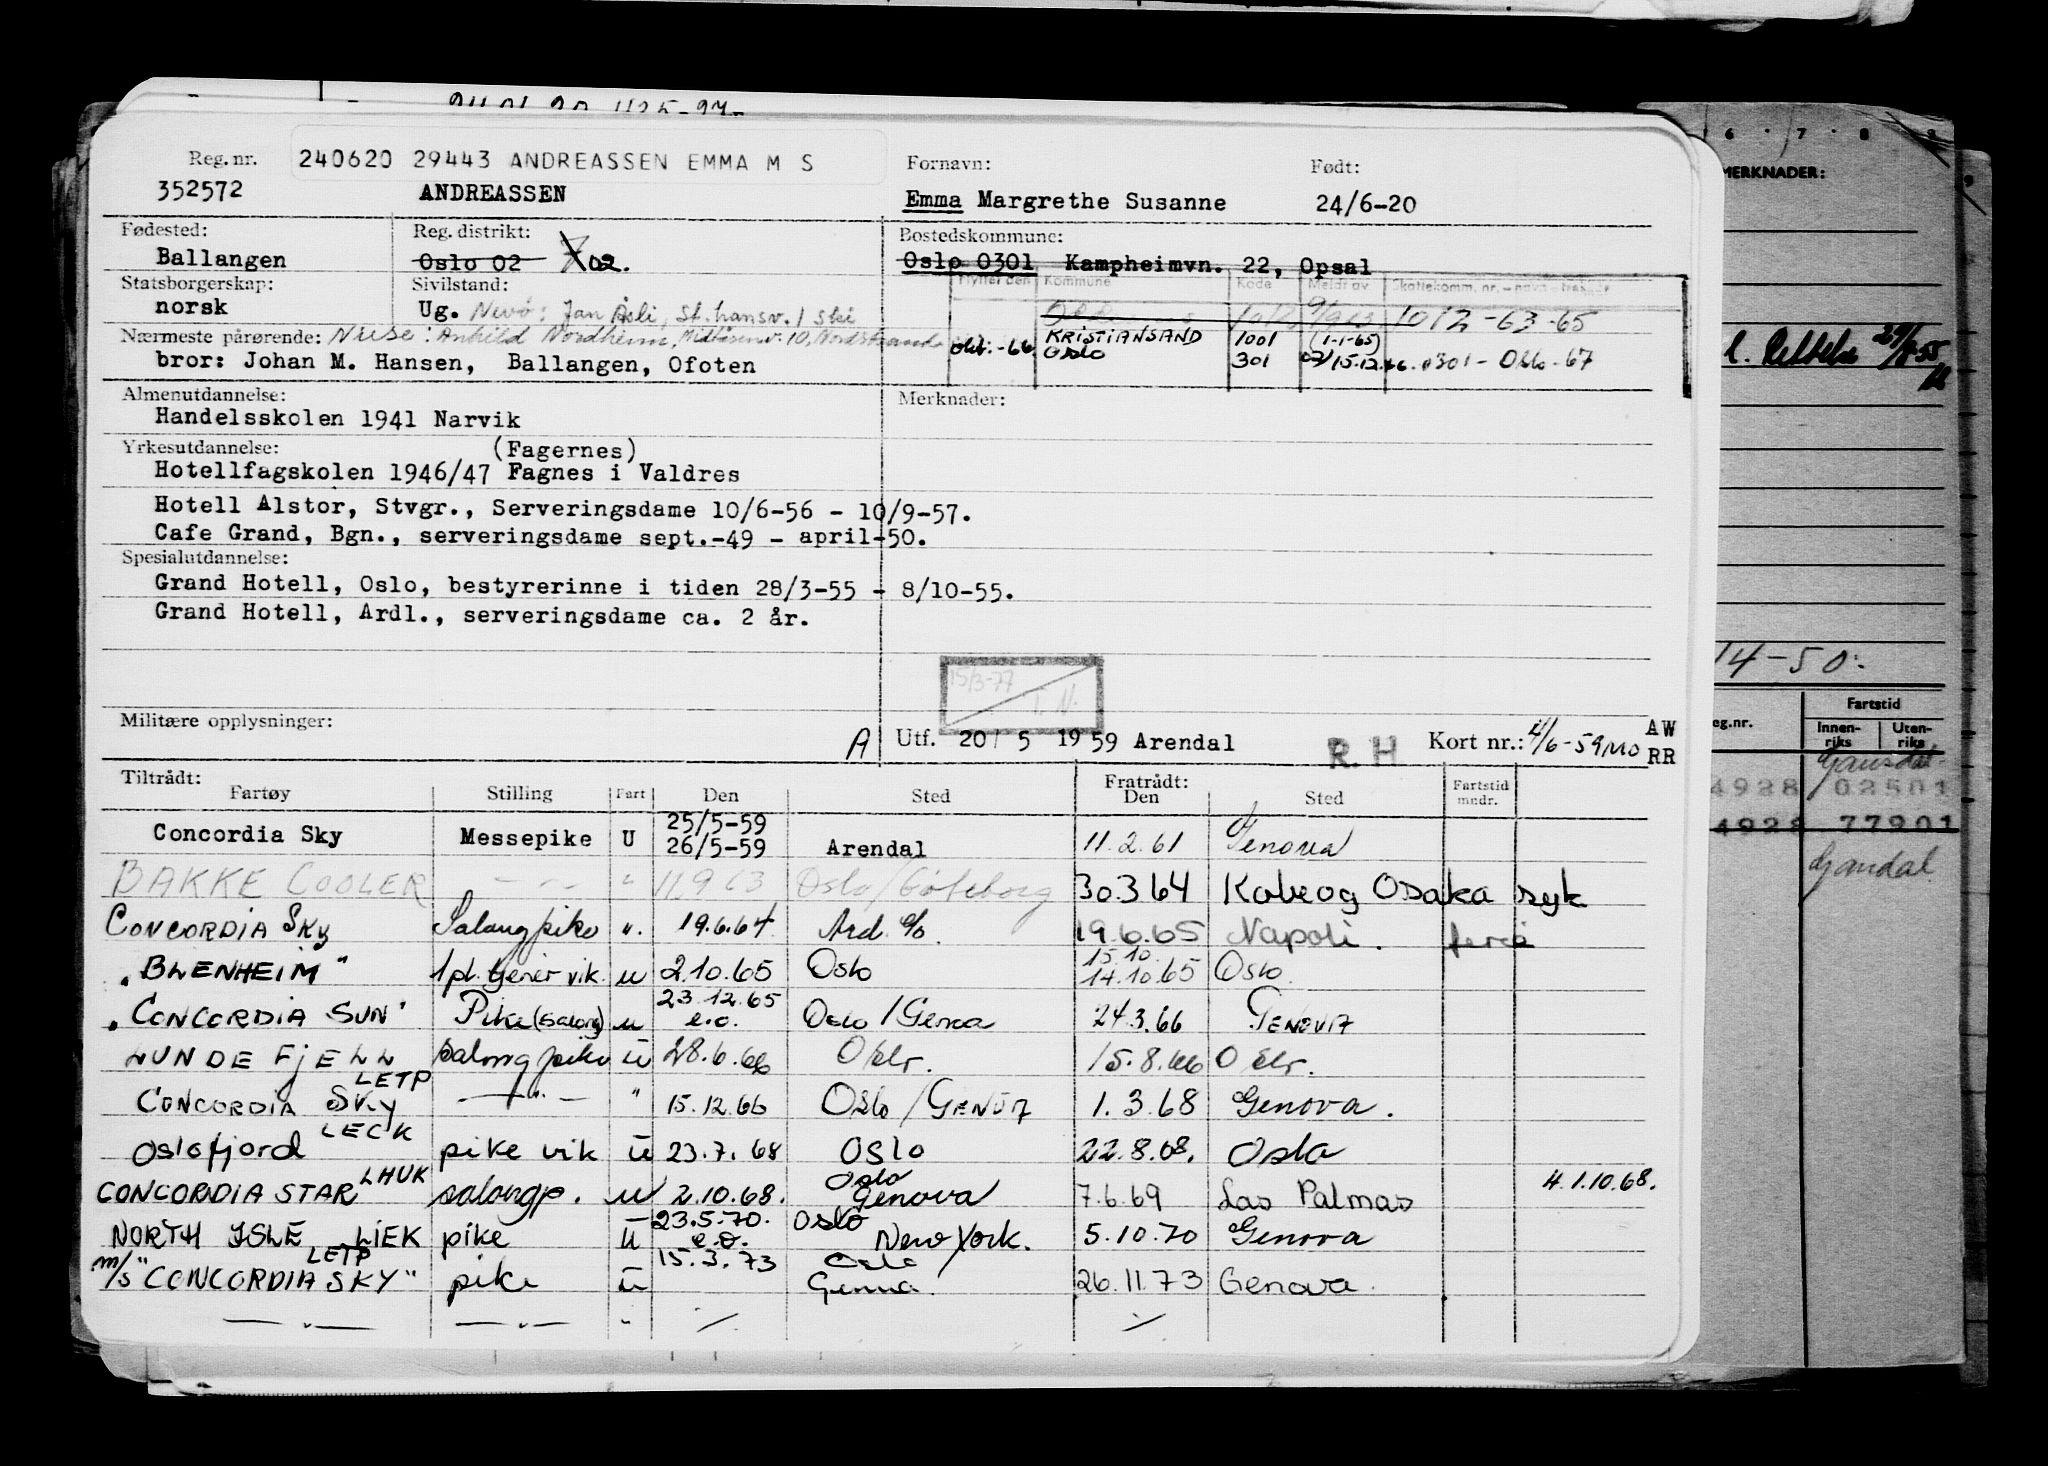 Reg. nr. 240620 29443 ANDREASSEN EMMA M S Fornavn: Født:
352572 ANDREASSEN Emma Margrethe Susanne 24/6-20
Fødested: Reg. distrikt: Bostedskommune:
Ballangen Oslo 02 02. Oslo 0301 Kampheimvn. 22, Opsal
Statsborgerskap: Sivilstand: Flyttet den Kommune Kode Meldt av Skattekomm. nr. - navn - trekkår
norsk Ug. Nevø: Jan Åsli, St.hansv. 1 Ski 1012-63-65
Nærmeste pårørende: Niese: Anhild Nordheim, Midtåsenv. 10, Nordstrand KRISTIANSAND 1001 (1-1-65)
bror: Johan M. Hansen, Ballangen, Ofoten okt.-66 Oslo 301 15.12.66. 0301 - Oslo - 67
Almenutdannelse: Merknader:
Handelsskolen 1941 Narvik
Yrkesutdannelse: (Fagernes)
Hotellfagskolen 1946/47 Fagnes i Valdres
Hotell Alstor, Stvgr., Serveringsdame 10/6-56 - 10/9-57.
Cafe Grand, Bgn., serveringsdame sept.-49 - april-50.
Spesialutdannelse:
Grand Hotell, Oslo, bestyrerinne i tiden 28/3-55 - 8/10-55.
Grand Hotell, Ardl., serveringsdame ca. 2 år.
15/3-77
T. N.
Militære opplysninger: A Utf. 20/ 5 19 59 Arendal R. H Kort nr.: 2/6-59 MO AW
RR
Tiltrådt: Fratrådt:
Fartøy Stilling Fart Den Sted Den Sted Fartstid mndr.
Concordia Sky Messepike U 25/5-59 26/5-59 Arendal 11.2.61 Genova
BAKKE COOLER - " - " 11.9 63 Oslo/Göteborg 30.3 64 Kobe og Osaka syk
CONCORDIA SKY Salongpike ". 19.6.64 Ard. 19.6.65 Napoli. ferie
"BLENHEIM" 1pl. tjener vik. u 2.10.65 Oslo 15.10 14.10.65 Oslo.
"CONCORDIA SUN" Pike (salong) u 23.12.65 e.o. Oslo/Genoa 24.3.66 GENOVA
LUNDE FJELL salongpike u 28.6.66 Oslo. 15.8.66 Oslo.
LETP
CONCORDIA SKY - " - " 15.12.66 Oslo/GENOVA 1.3.68 Genova.
LECK
Oslofjord pike vik u 23.7.68 OSLO 22.8.68. Oslo
LHUK
CONCORDIA STAR salongp. u 2.10.68. Oslo Genova 7.6.69 Las Palmas 4.1.10.68.
NORTH ISLE LIEK pike u 23.5.70. e.o. Oslo New York. 5.10.70 Genova
LETP
m/s "CONCORDIA SKY" pike u 15.3.73 Oslo Genua. 26.11.73 Genova.
— " — — " — " ٪ ٪
6 . 7 . 8
MERKNADER:
14-50.
eg.nr. Fartstid
Innenriks Utenriks
4928 02501
4928 77901
Gjausdal